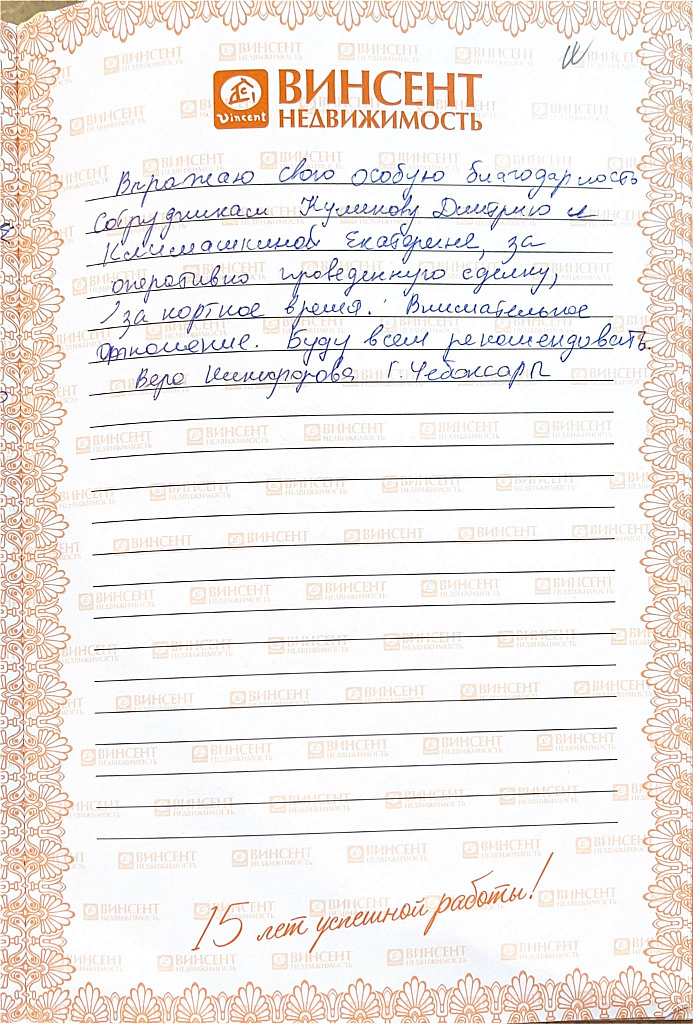 Vincent
ВИНСЕНТ
НЕДВИЖИМОСТЬ
Выражаю свою особую благодарность
сотрудникам Куликову Дмитрию и
Климашкиной Екатерине, за
оперативно проведенную сделку,
за корткое время. Внимательное
отношение. Буду всем рекомендовать.
Вера Никифорова г. Чебоксары
15 лет успешной работы!